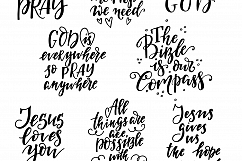 PRAY
we need
GOD
GOD is
everywhere
so PRAY
anywhere
The
Bible
is our
Compass
Jesus
loves
you
All
things are
are
possible
with
Jesus
gives
us
the hope